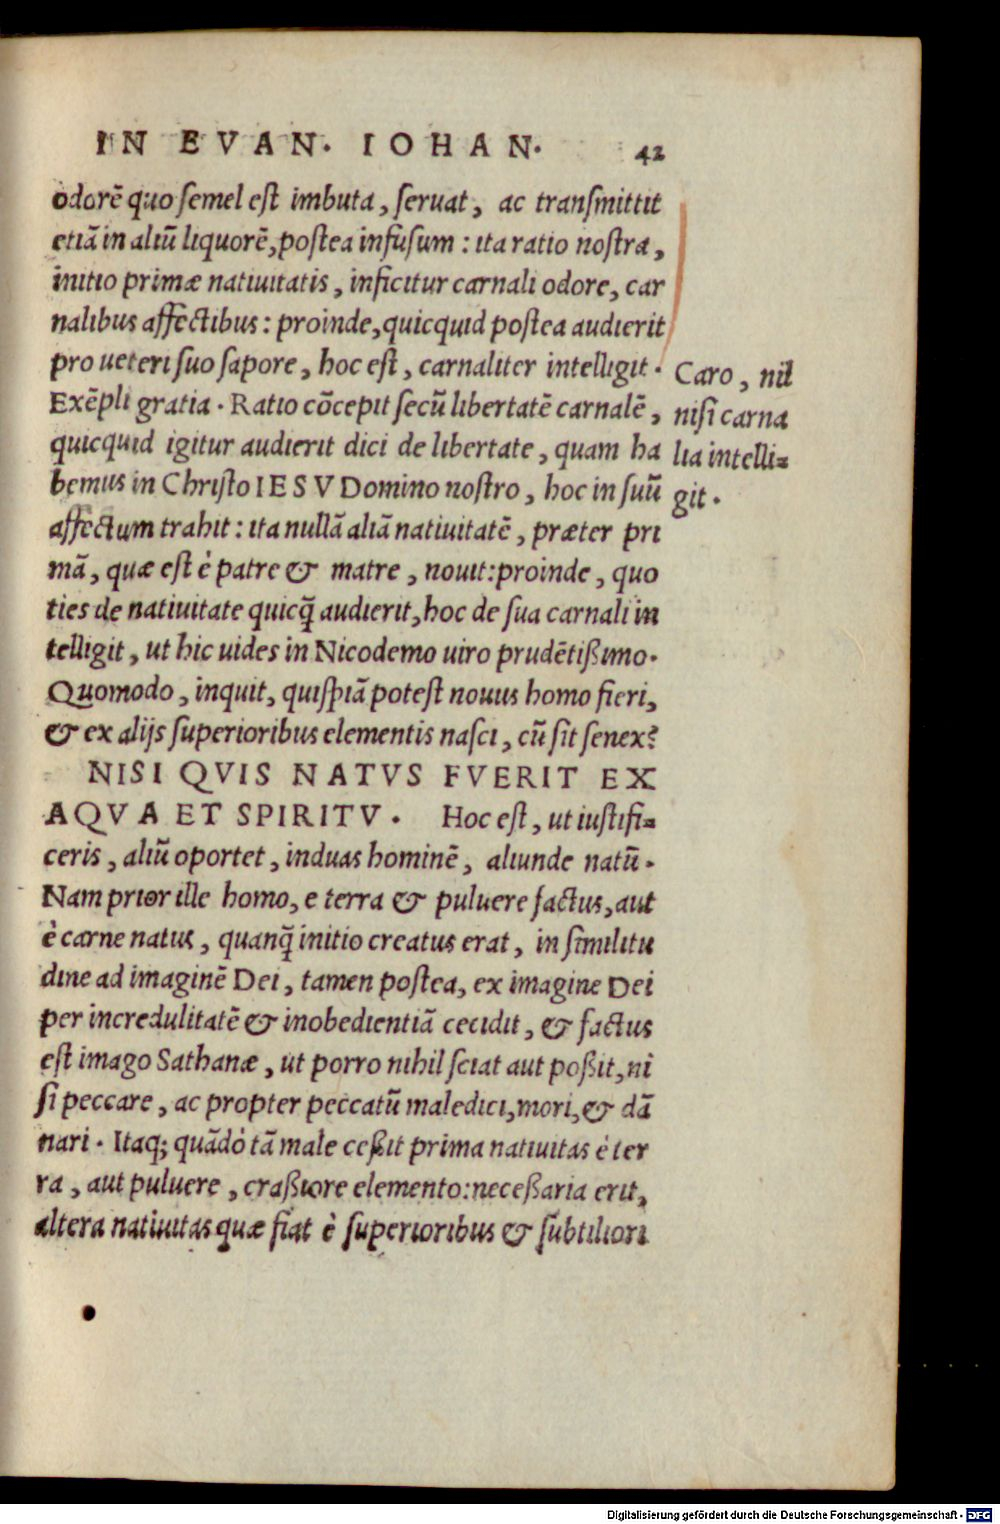 IN EVAN. IOHAN. 42
odorē quo semel est imbuta, seruat, ac transmittit
etiā in aliū liquorē, postea infusum: ita ratio nostra,
initio primæ natiuitatis, inficitur carnali odore, car
nalibus affectibus: proinde, quicquid postea audierit
pro ueteri suo sapore, hoc est, carnaliter intelligit.
Exēpli gratia. Ratio cōcepit secū libertatē carnalē,
quicquid igitur audierit dici de libertate, quam ha
bemus in Christo IESV Domino nostro, hoc in suū
affectum trahit: ita nullā aliā natiuitatē, præter pri
mā, quæ est è patre & matre, nouit: proinde, quo
ties de natiuitate quicq̃ audierit, hoc de sua carnali in
telligit, ut hic uides in Nicodemo uiro prudētißimo.
Quomodo, inquit, quispiā potest nouus homo fieri,
& ex alijs superioribus elementis nasci, cū sit senex?
NISI QVIS NATVS FVERIT EX
AQVA ET SPIRITV. Hoc est, ut iustifi=
ceris, aliū oportet, induas hominē, aliunde natū.
Nam prior ille homo, e terra & puluere factus, aut
è carne natus, quanq̃ initio creatus erat, in similitu
dine ad imaginē Dei, tamen postea, ex imagine Dei
per incredulitatē & inobedientiā cecidit, & factus
est imago Sathanæ, ut porro nihil sciat aut poßit, ni
si peccare, ac propter peccatū maledici, mori, & dā
nari. Itaq; quādo tā male ceßit prima natiuitas è ter
ra, aut puluere, craßiore elemento: neceßaria erit,
altera natiuitas quæ fiat è superioribus & subtiliori
Caro, nil
nisi carna
lia intelli=
git.
Digitalisierung gefördert durch die Deutsche Forschungsgemeinschaft - DFG